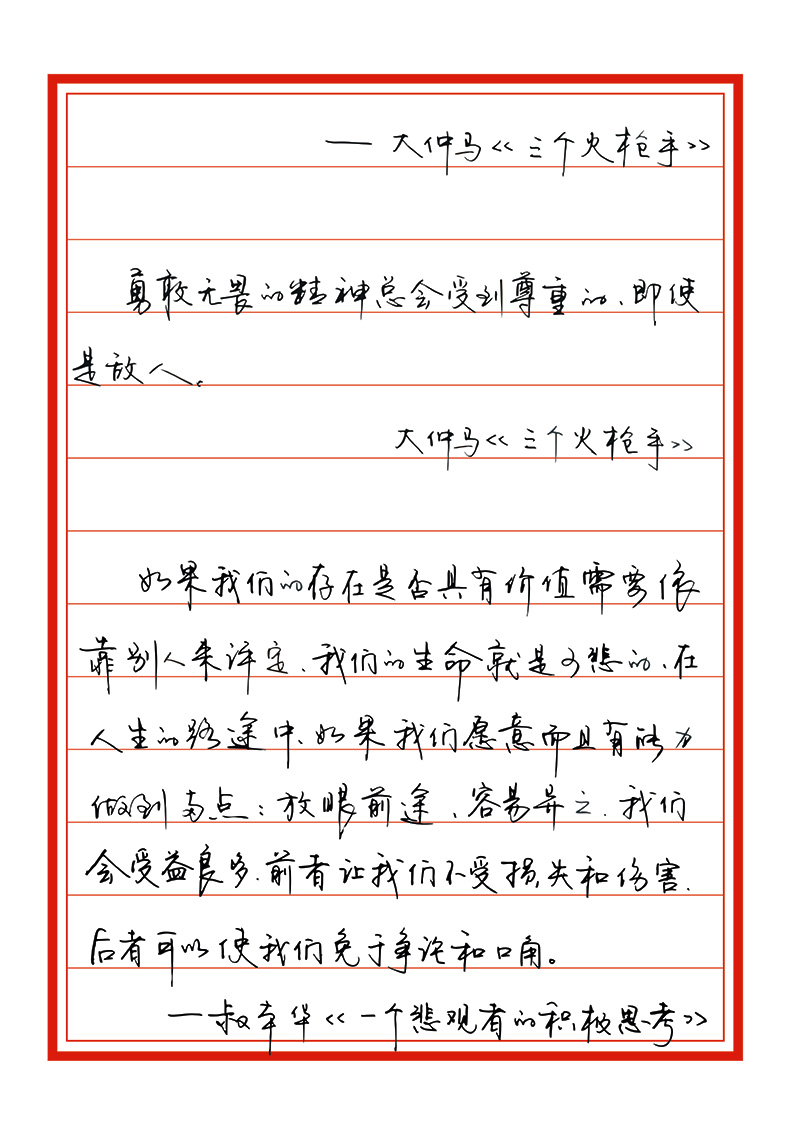 — 大仲马《三个火枪手》
勇敢无畏的精神总会受到尊重的、即使
是敌人。
大仲马《三个火枪手》
如果我们的存在是否具有价值需要依
靠别人来评定、我们的生命就是可悲的、在
人生的路途中、如果我们愿意而且有能力
做到两点：放眼前途、容易异之、我们
会受益良多、前者让我们不受损失和伤害、
后者可以使我们免于争论和口角。
—叔本华《一个悲观者的积极思考》